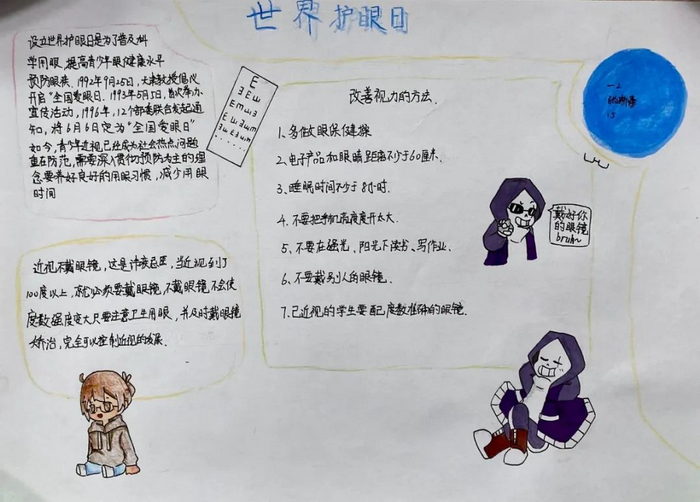 世界护眼日
设立世界护眼日是为了普及科
学用眼、提高青少年眼健康水平
预防眼疾。1992年9月25日,天津教授倡议
开启"全国爱眼日。1993年5月5日,首次举办
宣传活动,1996年,12个部委联合发起通
知,将6月6日定为"全国爱眼日"
如今,青少年近视已经成为社会热点问题
重在防范,需要深入贯彻预防为主的理
念要养好良好的用眼习惯,减少用眼
时间
E
ヨEш
EmшЗ
改善视力的方法.
1、多做眼保健操
2、电子产品和眼睛距离不少于60厘米.
3、睡眠时间不少于8小时.
4、不要把手机亮度开太大.
5、不要在强光、阳光下读书、写作业.
6、不要戴别人的眼镜.
7.已近视的学生要配度数准确的眼镜.
一2
15
戴好你
的眼镜
bruh~
近视不戴眼镜,这是
100度以上,就必须要戴眼镜,不戴眼镜不会使
度数
大只要注意卫生用眼,并及时戴眼镜
矫治,完全可以控制近视的发展.